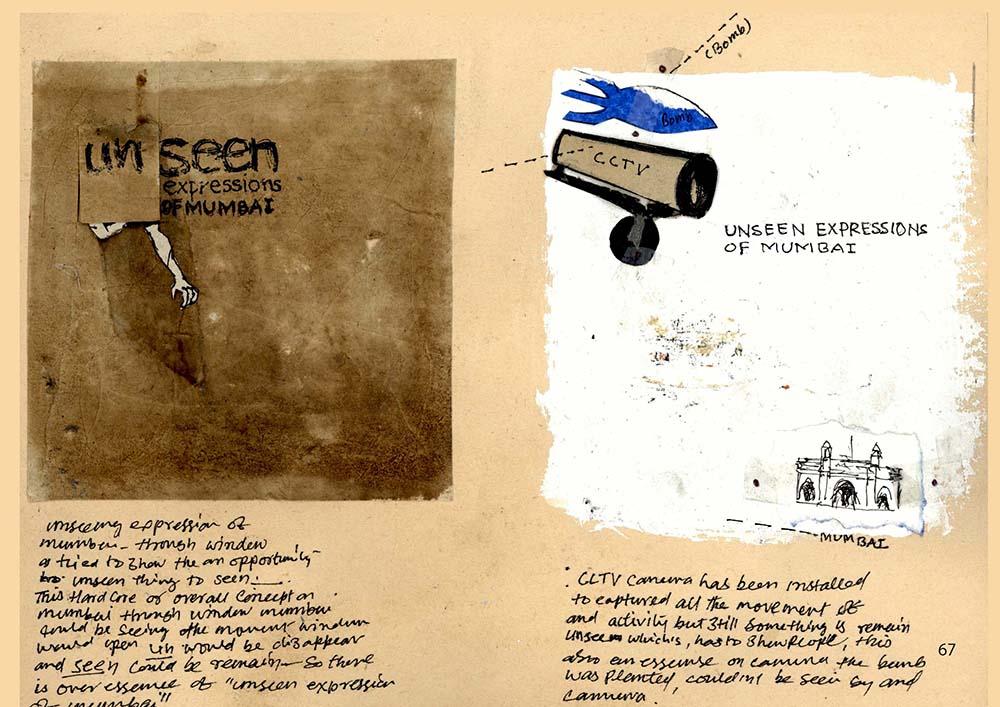 un seen
expressions
OF MUMBAI
unseeing expression of
mumbai - through window
a tried to show the an opportunity
unseen thing to seen.
This Hard Core or overall Concept on
mumbai through window mumbai
could be seeing the moment window
would open un would be disappear
and seen could be remain - So there
is over essence of "unseen expression
of mumbai"
(Bomb)
Bomb
CCTV
UNSEEN EXPRESSIONS
OF MUMBAI
MUMBAI
CCTV camera has been installed
to captured all the movement of
and activity but still something is remain
unseen which's, has to show people, this
also an essense on camera the bomb
was planted, couldn't be seen by and
camera.
67